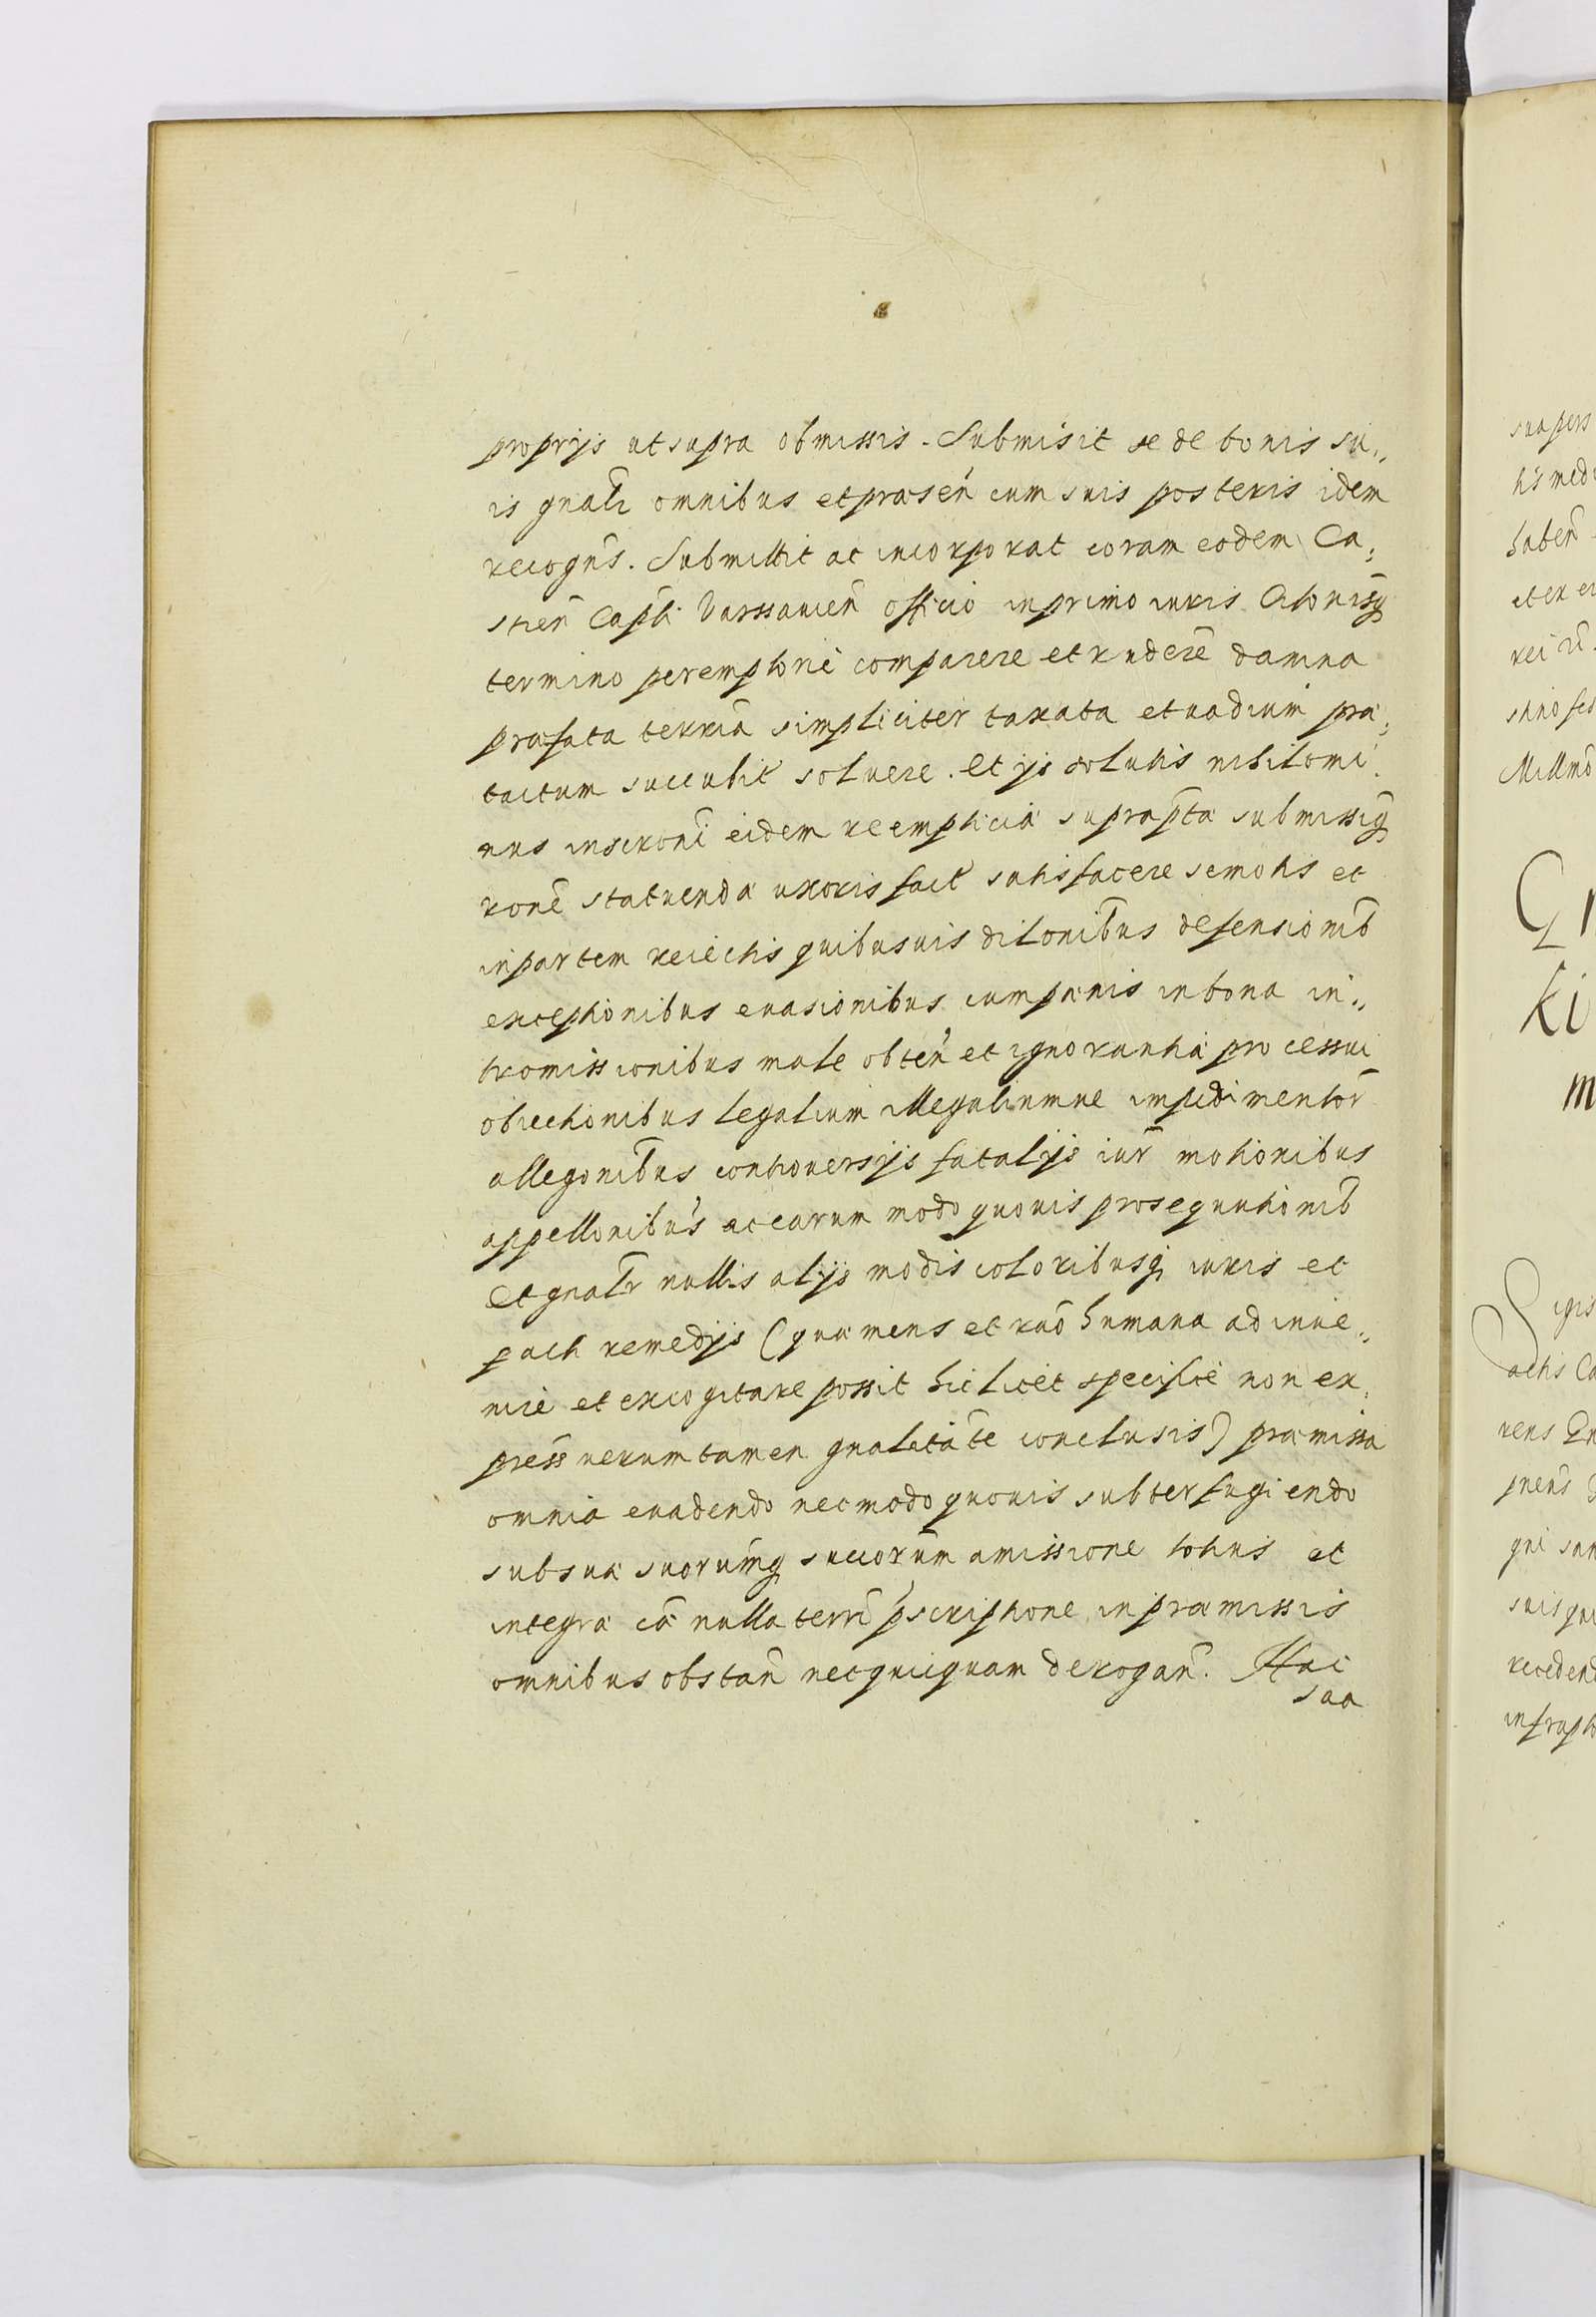 proprijs ut supra obmissis. Submisit se de bonis su„
is gnalr omnibus et præsen̄ cum suis posteris idem
recogn̄s. Submittit ac incorporat coram eodem Ca„
stren̄ Capl̄i Varssauien̄ officio in primo iuris Citonisq
termino peremptorie comparere et ruderē damna
præfata terria simpliciter taxata et uadium præ„
tactum succubit̄ soluere. Et ijs solutis nihilomi„
nus inscrōni eidem reemptitia suprapta submissiq
rone statuenda uxoris fact̄ satisfacere semotis et
in partem reiectis quibusuis dilonib̄us defensionib̄
exceptionibus euasionibus cum pænis in bona in„
tromissionibus male obten̄ et ignorantia processui
obiectionibus legalium illegaliumue impedimentor̄
allegonib̄us controuersijs fatalijs iur̄ motionibus
appellonib̄us ac earum modo quouis prosequutionib̄
Et gnalr̄ nullis alijs modis coloribusq iuris et
pacti remedijs (quæ mens et raō humana ad inue„
nire et excogitare possit hic licet specifice non ex„
press uerum tamen gnalitāte conclusis) præmissa
omnia euadendo nec modo quouis subterfugiendo
sub sua suorumq succorum amissione totius et
integra cā nulla terrī pscriptione in præmissis
omnibus obstan̄ nec quicquam derogan̄. Hac
saa
suapers
tis medi
haben̄
et ex ei
rei
Sigis
actis Ca
rens
pnens
qui san
suis qui
recedend
infrapto
Ki
m